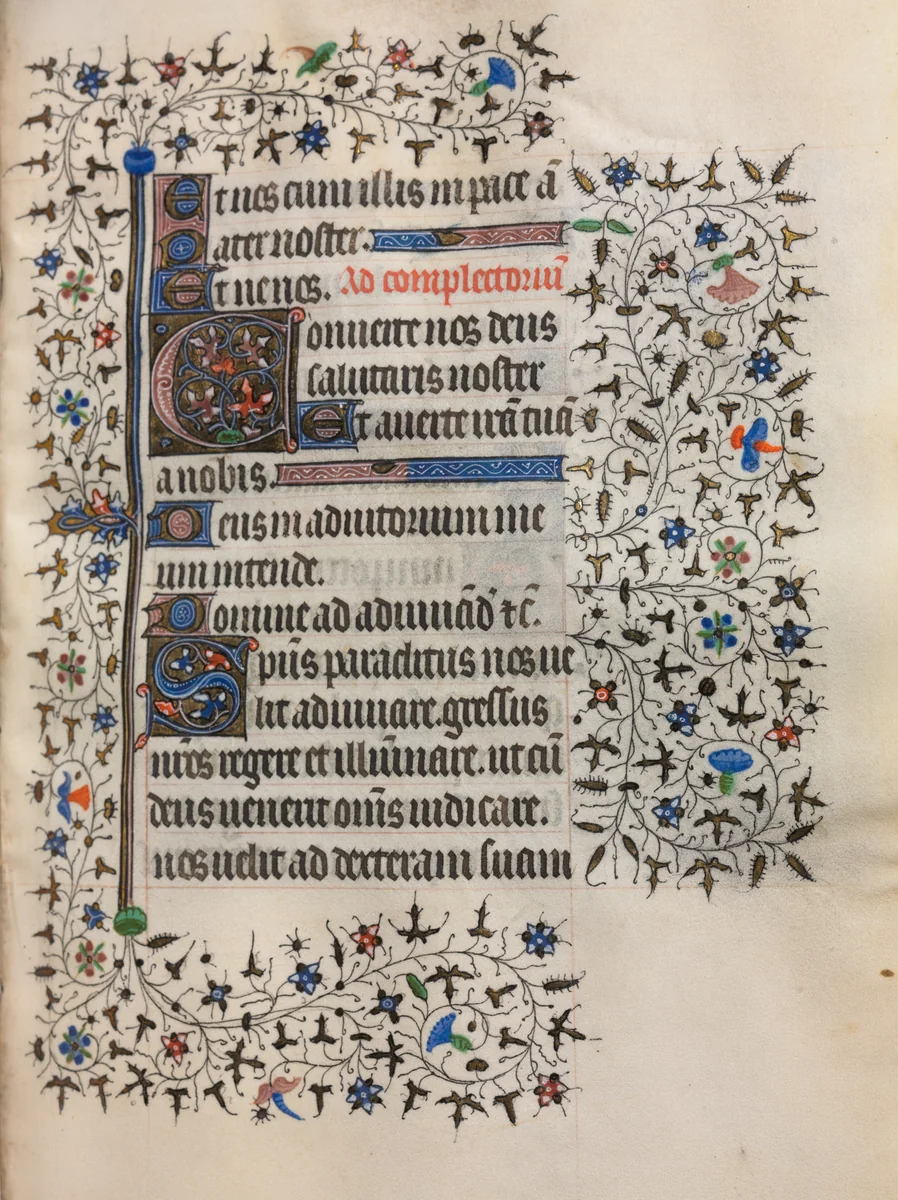 Et nos cum illis in pace ā
Pater noster.
Et ne nos. Ad complectoriū
Conuerte nos deus
salutaris noster
Et auerte irā tuā
a nobis.
Deus in adiutorium me
um intende.
Domine ad adiuuād' ⁊ c̄.
Spūs paraclitus nos ue
lit adiuuare. gressus
nr̄os regere et illūinare. ut cū
deus uenerit om̄s iudicare.
nos uelit ad dexteram suam